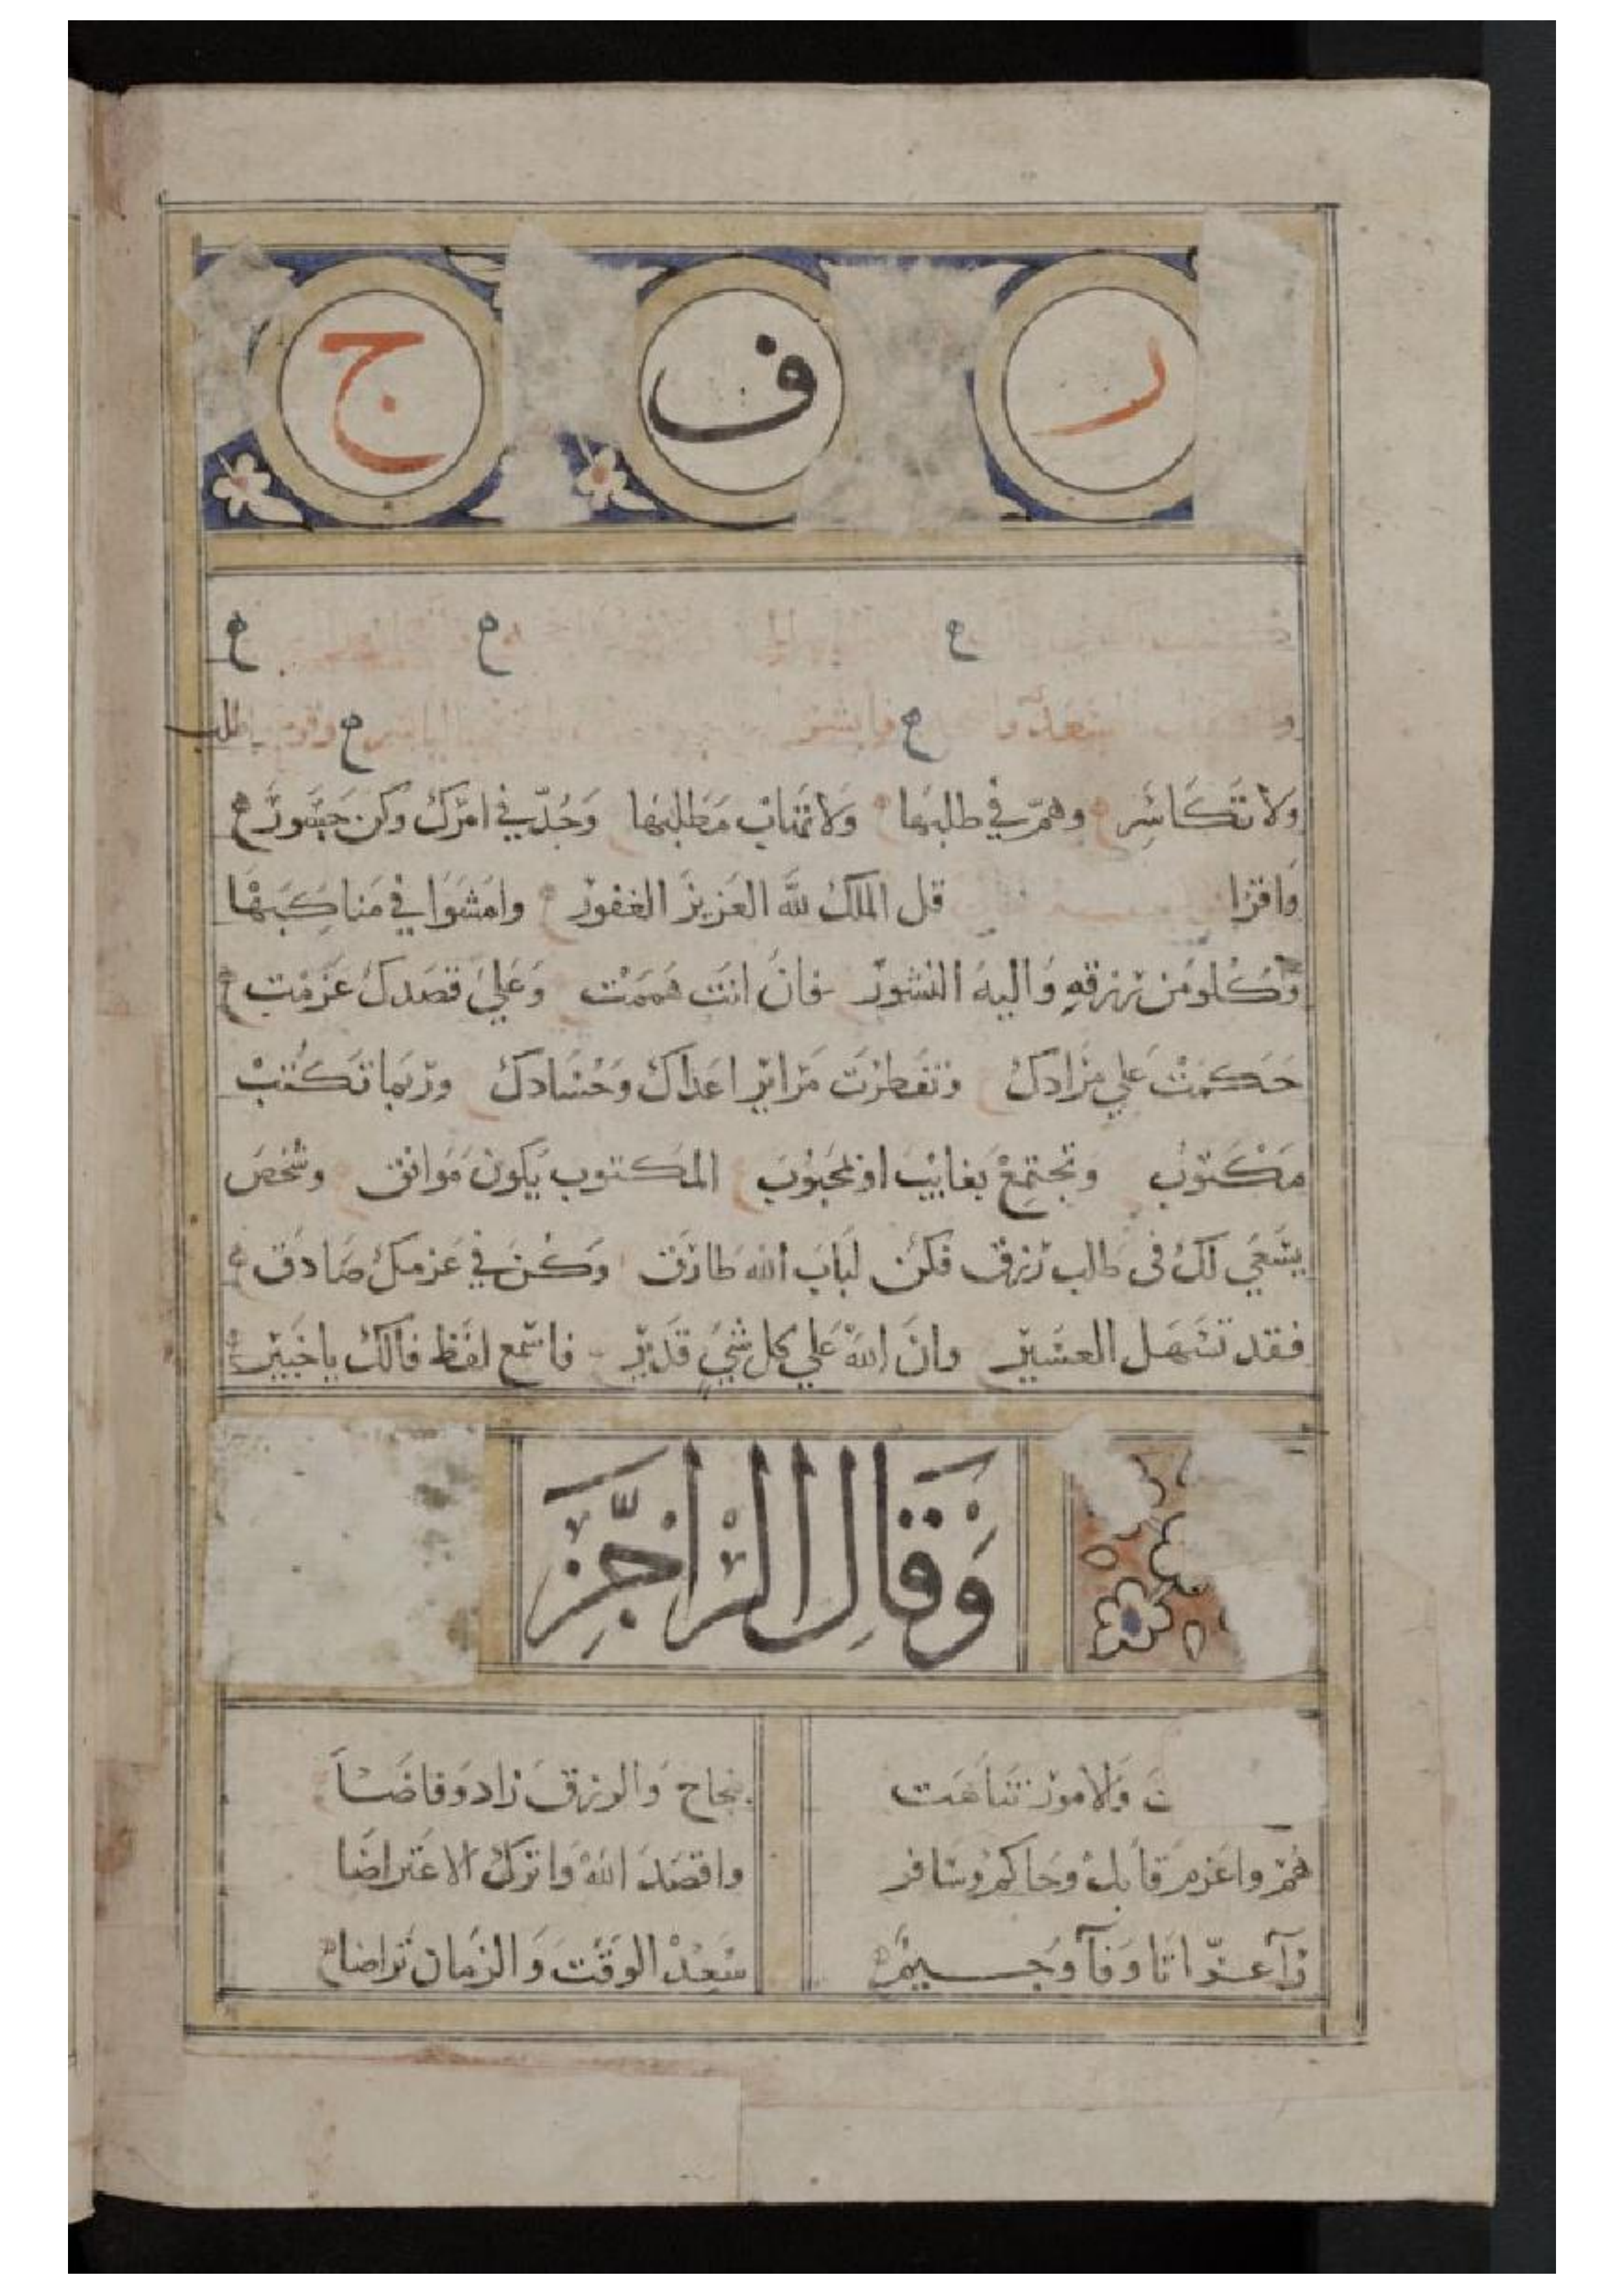 ر ف ج
ح ح ح
سعد وا ح فابشر ح اطلب
ولا تكاسر وهم في طلبها ولا تهاب مطالبها وجد في امرك وكن جسور
واقرا قل الملك لله العزيز الغفور وامشوا في مناكبها
وكلو من رزقه واليه النشور فان انت هممت وعلي قصدك عزمت
حكمت علي مرادك وتفطرت مراير اعداك وحسادك وربما تكتب
مكتوب وتجتمع بغايب او محبوب المكتوب يكون موافق وشخص
يسعي لك فى طالب رزق فكن لباب الله طارق وكن في عزمك صادق
فقد تسهل العسير وان الله علي كل شي قدير فاسمع لفظ فالك ياخبير
وقال الراجز
والامور تناهت بنجاح والرزق زاد وفاضا
هم واعزم قابل وحاكم وسافر واقصد الله واترك الاعتراضا
سعد الوقت والزمان تراضا